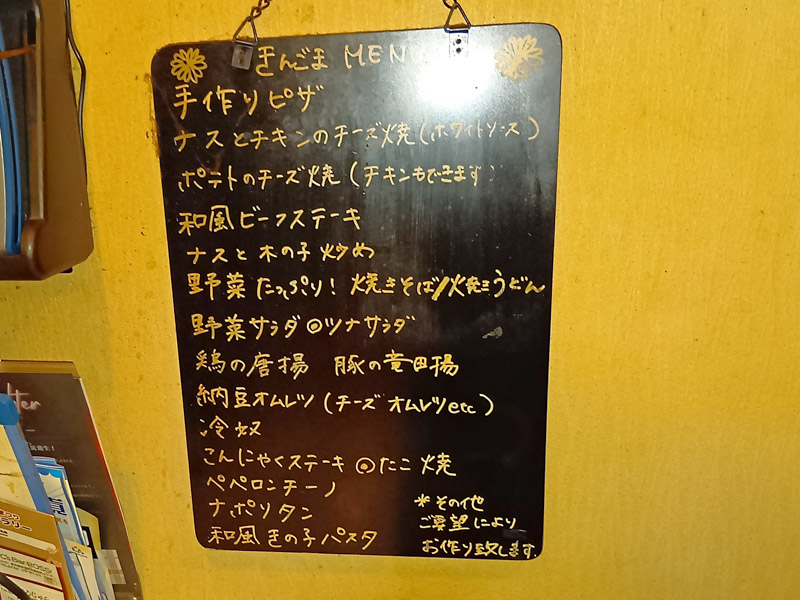 きんごま MENU
手作りピザ
ナスとチキンのチーズ焼(ホワイトソース)
ポテトのチーズ焼(チキンもできます)
和風ビーフステーキ
ナスと木の子炒め
野菜たっぷり!焼きそば/焼きうどん
野菜サラダ◎ツナサラダ
鶏の唐揚 豚の竜田揚
納豆オムレツ(チーズオムレツetc)
冷奴
こんにゃくステーキ◎たこ焼
ペペロンチーノ
ナポリタン
和風きの子パスタ
*その他
ご要望により
お作り致します。